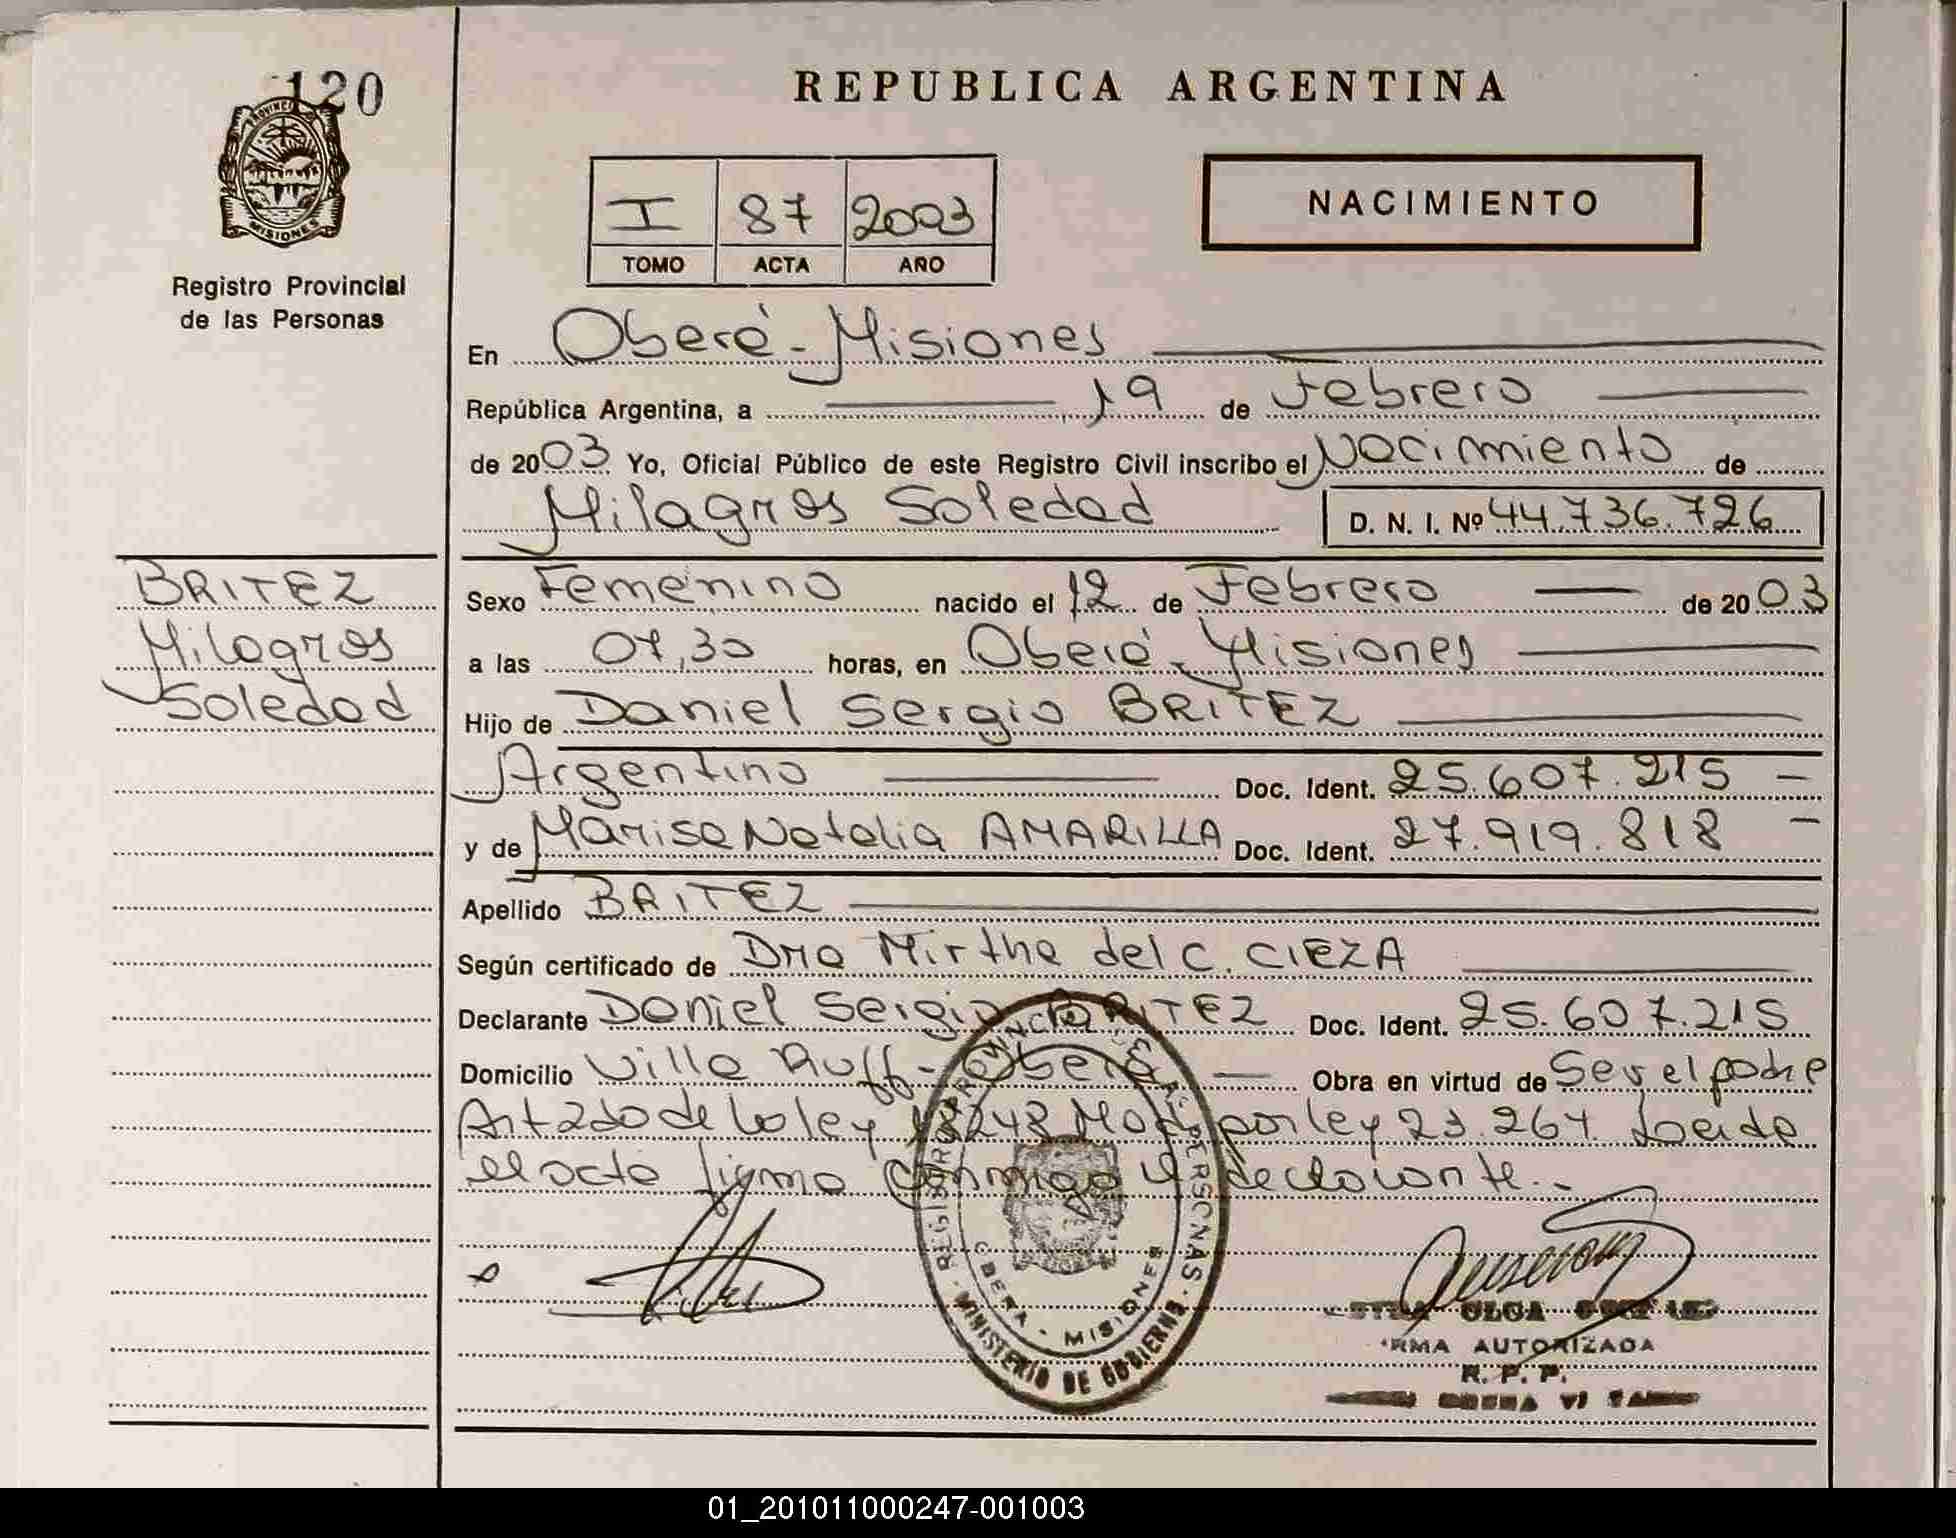 120
REPUBLICA ARGENTINA
PROVINCIA
MISIONES
Registro Provincial
de las Personas
I 87 2003
TOMO ACTA AÑO
NACIMIENTO
En Oberá - Misiones
República Argentina, a 19 de Febrero
de 2003 Yo, Oficial Público de este Registro Civil inscribo el Nacimiento de
Milagros Soledad D. N. I. Nº 44.736.726
BRITEZ
Milagros
Soledad
Sexo Femenino nacido el 12 de Febrero de 2003
a las 07,30 horas, en Oberá - Misiones
Hijo de Daniel Sergio BRITEZ
Argentino Doc. Ident. 25.607.215 -
y de Marisa Natalia AMARILLA Doc. Ident. 27.919.818 -
Apellido BRITEZ
Según certificado de Dra Mirtha del C. CIEZA
Declarante Daniel Sergio BRITEZ Doc. Ident. 25.607.215
Domicilio Villa Ruff - Oberá - Obra en virtud de Ser el padre
Art 2do de la ley 18248 Mod por ley 23.264. Leída
el acta firma conmigo el declarante.-
REGISTRO PROVINCIAL DE LAS PERSONAS
OBERA - MISIONES
MINISTERIO DE GOBIERNO
OLGA
FIRMA AUTORIZADA
R. P. P.
01_201011000247-001003